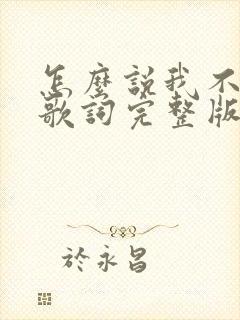 怎麼說我不
歌詞完整版
於永昌